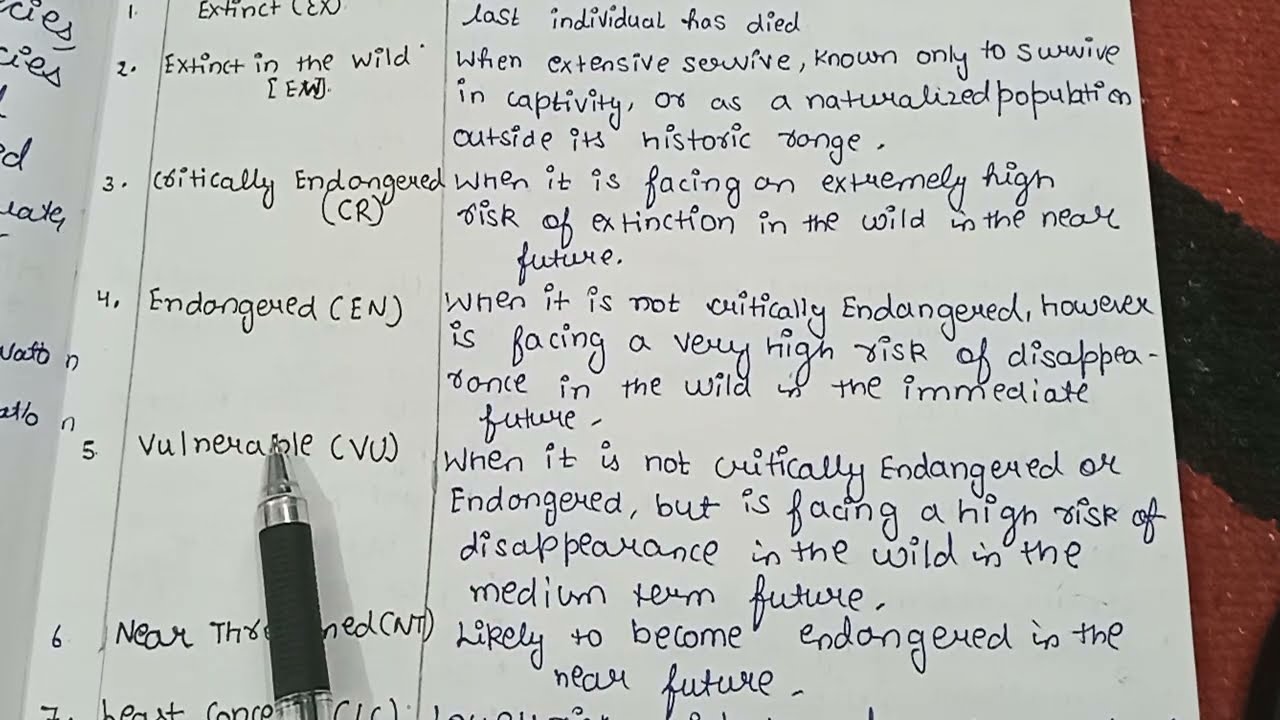 cies
cies
ed
late,
vatio n
atio n
1. Extinct (EX) last individual has died
2. Extinct in the wild When extensive servive, known only to survive
[EW]. in captivity, or as a naturalized population
outside its historic range.
3. Critically Endangered When it is facing an extremely high
(CR) risk of extinction in the wild in the near
future.
4. Endangered (EN) When it is not critically Endangered, however
is facing a very high risk of disappea-
rance in the wild in the immediate
future.
5. Vulnerable (VU) When it is not critically Endangered or
Endangered, but is facing a high risk of
disappearance in the wild in the
medium term future.
6 Near Thr ned (NT) Likely to become endangered in the
near future.
7. Least Conce (LC)